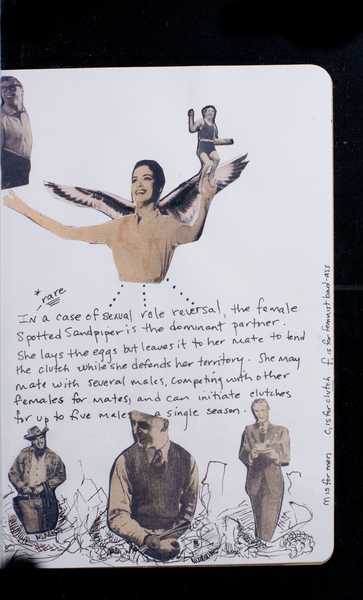 * rare
In a case of sexual role reversal, the female
Spotted Sandpiper is the dominant partner.
She lays the eggs but leaves it to her mate to tend
the clutch while she defends her territory. She may
mate with several males, competing with other
females for mates, and can initiate clutches
for up to five males a single season.
M is for men C, is for clutch f, is for feminist bad-ass